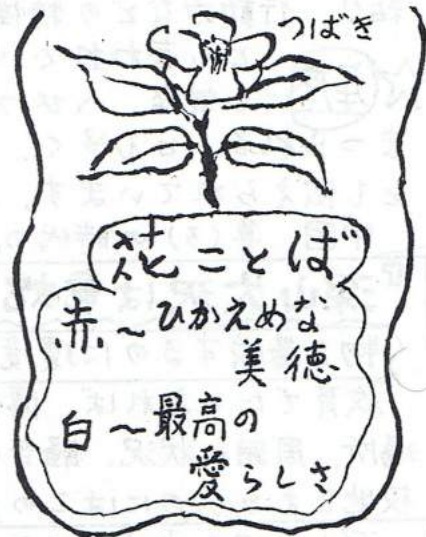 つばき
花ことば
赤～ひかえめな
美徳
白～最高の
愛らしさ